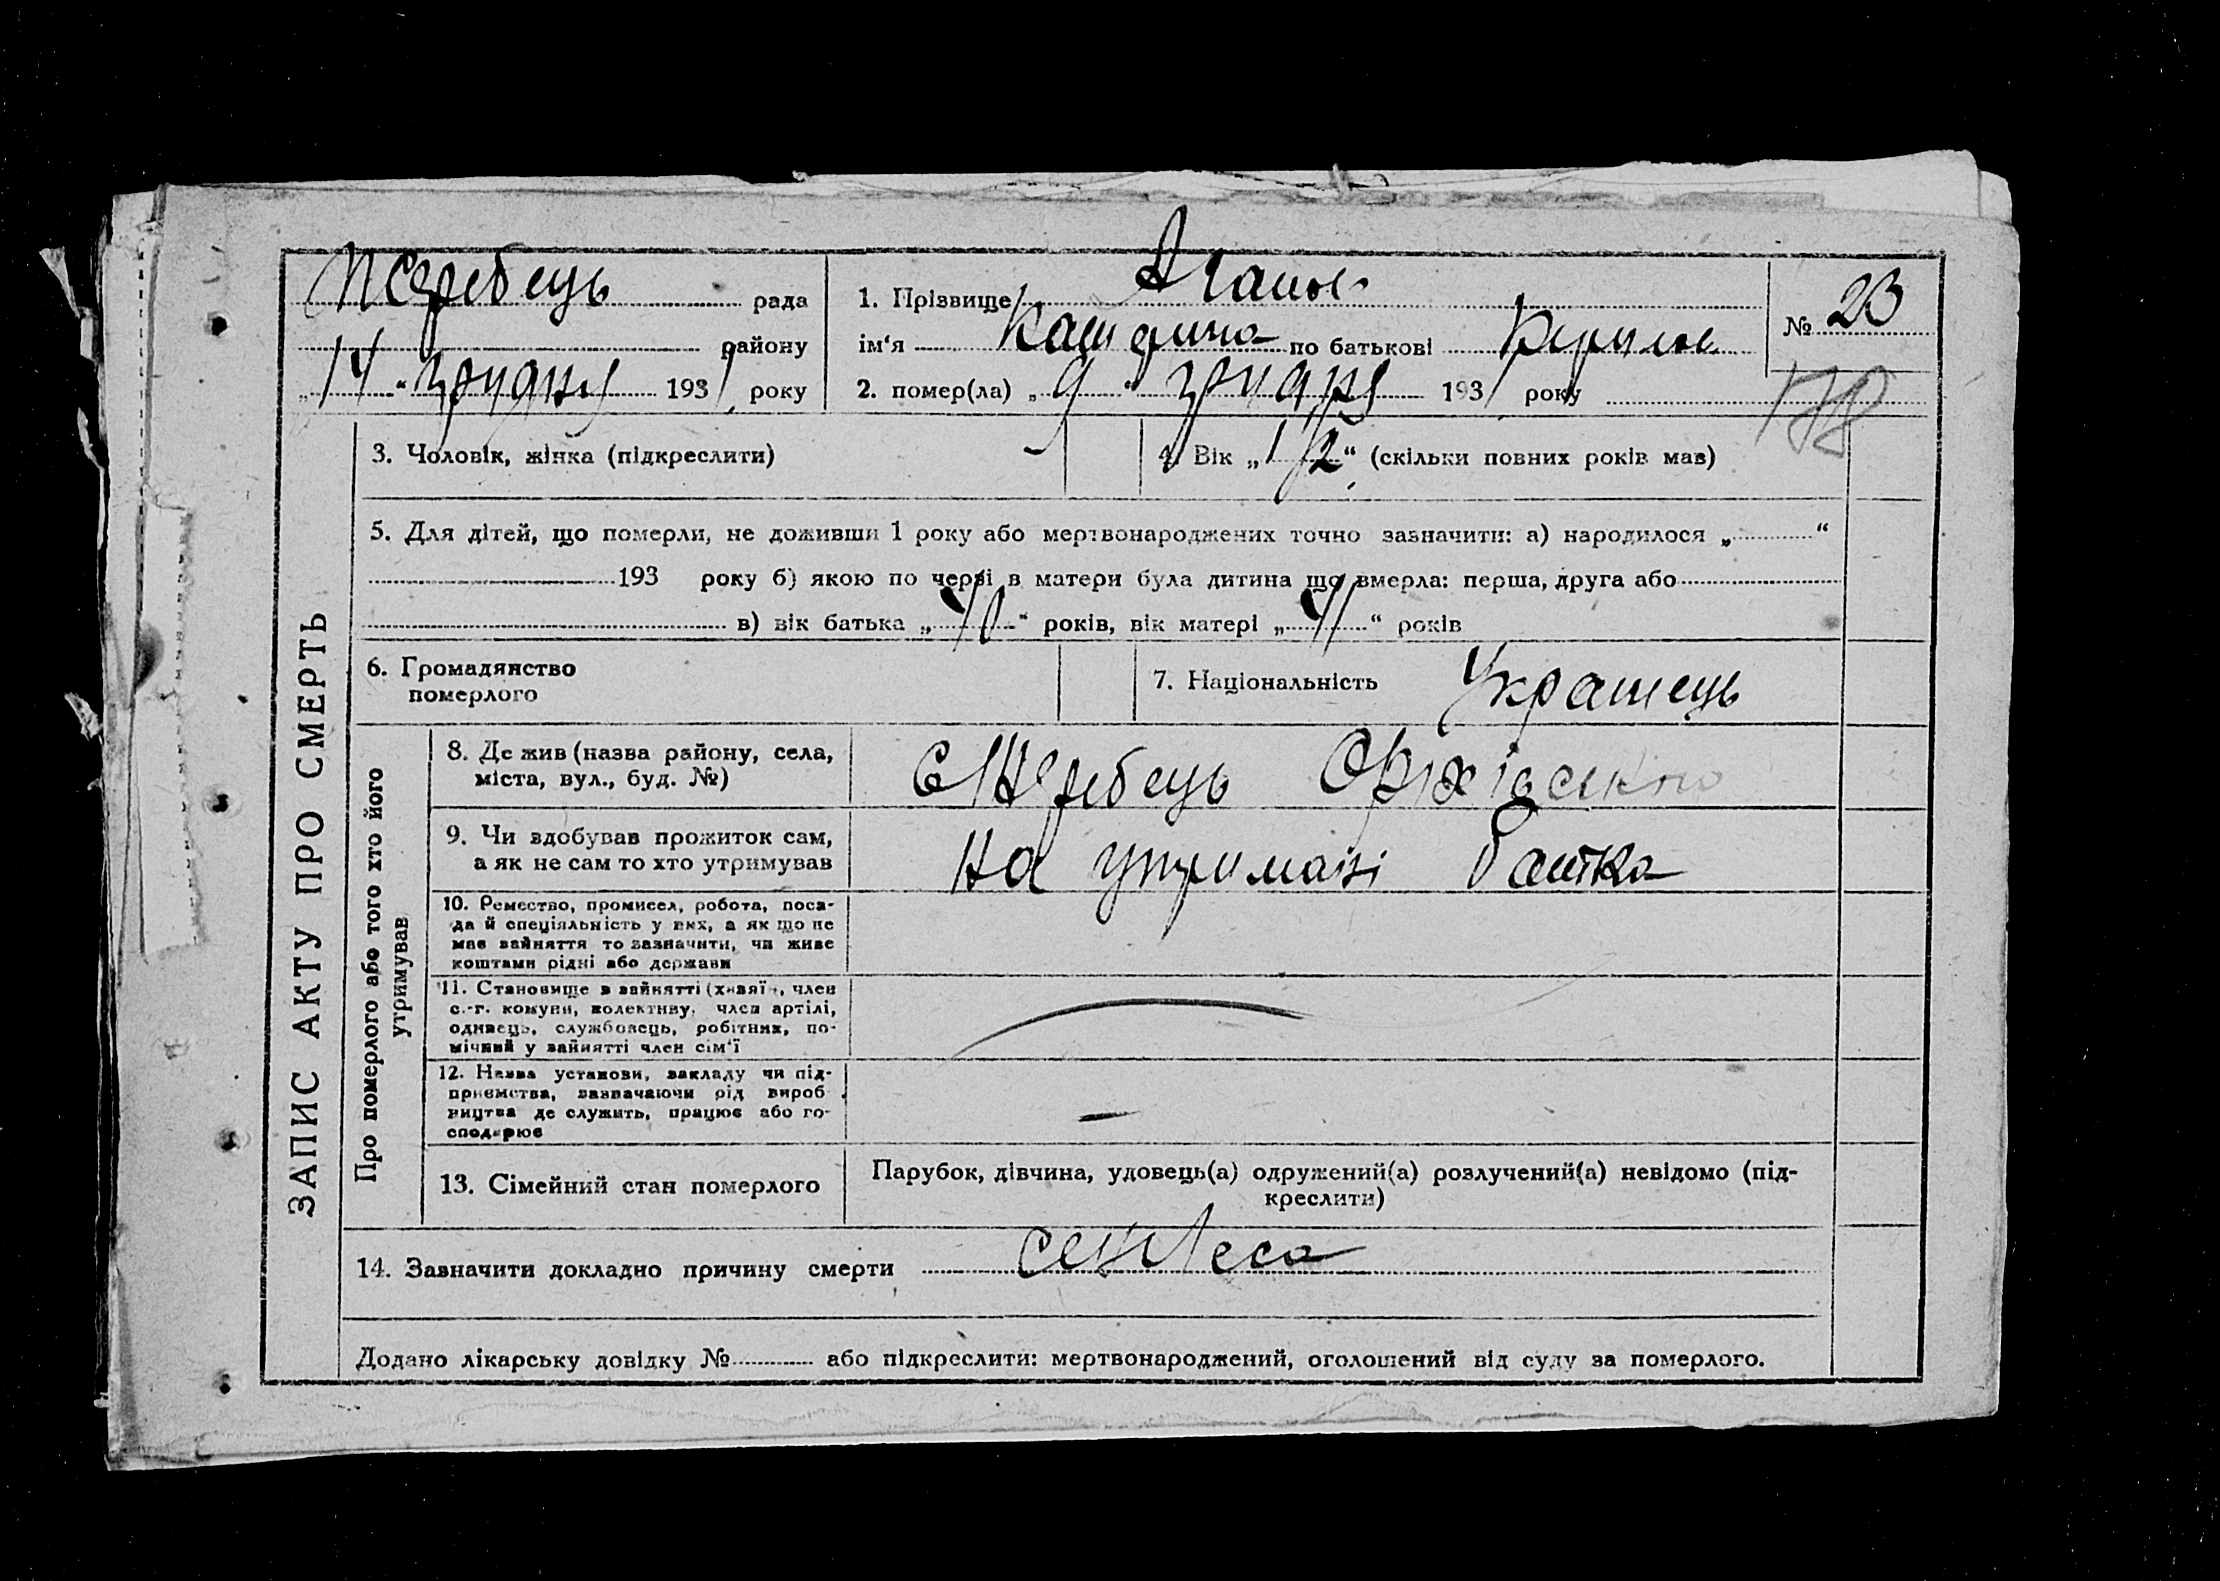 Жеребець рада
району
„14“ грудня 1931 року
1. Прізвище
ім'я Катерина по батькові
2. помер(ла) „9“ грудня 1931 року
№ 23
178
ЗАПИС АКТУ ПРО СМЕРТЬ
3. Чоловік, жінка (підкреслити)
4. Вік „1 1/2“ (скільки повних років мав)
5. Для дітей, що померли, не доживши 1 року або мертвонароджених точно зазначити: а) народилося „ “
193 року б) якою по черзі в матери була дитина що вмерла: перша, друга або
в) вік батька „40“ років, вік матері „41“ років
6. Громадянство
померлого
7. Національність Украінець
Про померлого або того хто його
утримував
8. Де жив (назва району, села,
міста, вул., буд. №)
с Жеребець Оріхівсьkого
9. Чи здобував прожиток сам,
а як не сам то хто утримував
На утримані батка
10. Ремество, промисел, робота, поса-
да й спеціяльність у них, а як що не
мав зайняття то зазначити, чи живе
коштами рідні або держави
11. Становище в зайнятті (хазяїн, член
с.-г. комуни, колективу, член артілі,
одинець, службовець, робітник, по-
мічний у зайнятті член сім'ї
12. Назва установи, закладу чи під-
приємства, зазначаючи рід вироб
ництва де служить, працює або го-
сподарює
13. Сімейний стан померлого
Парубок, дівчина, удовець(а) одружений(а) розлучений(а) невідомо (під-
креслити)
14. Зазначити докладно причину смерти
Додано лікарську довідку № або підкреслити: мертвонароджений, оголошений від суду за померлого.